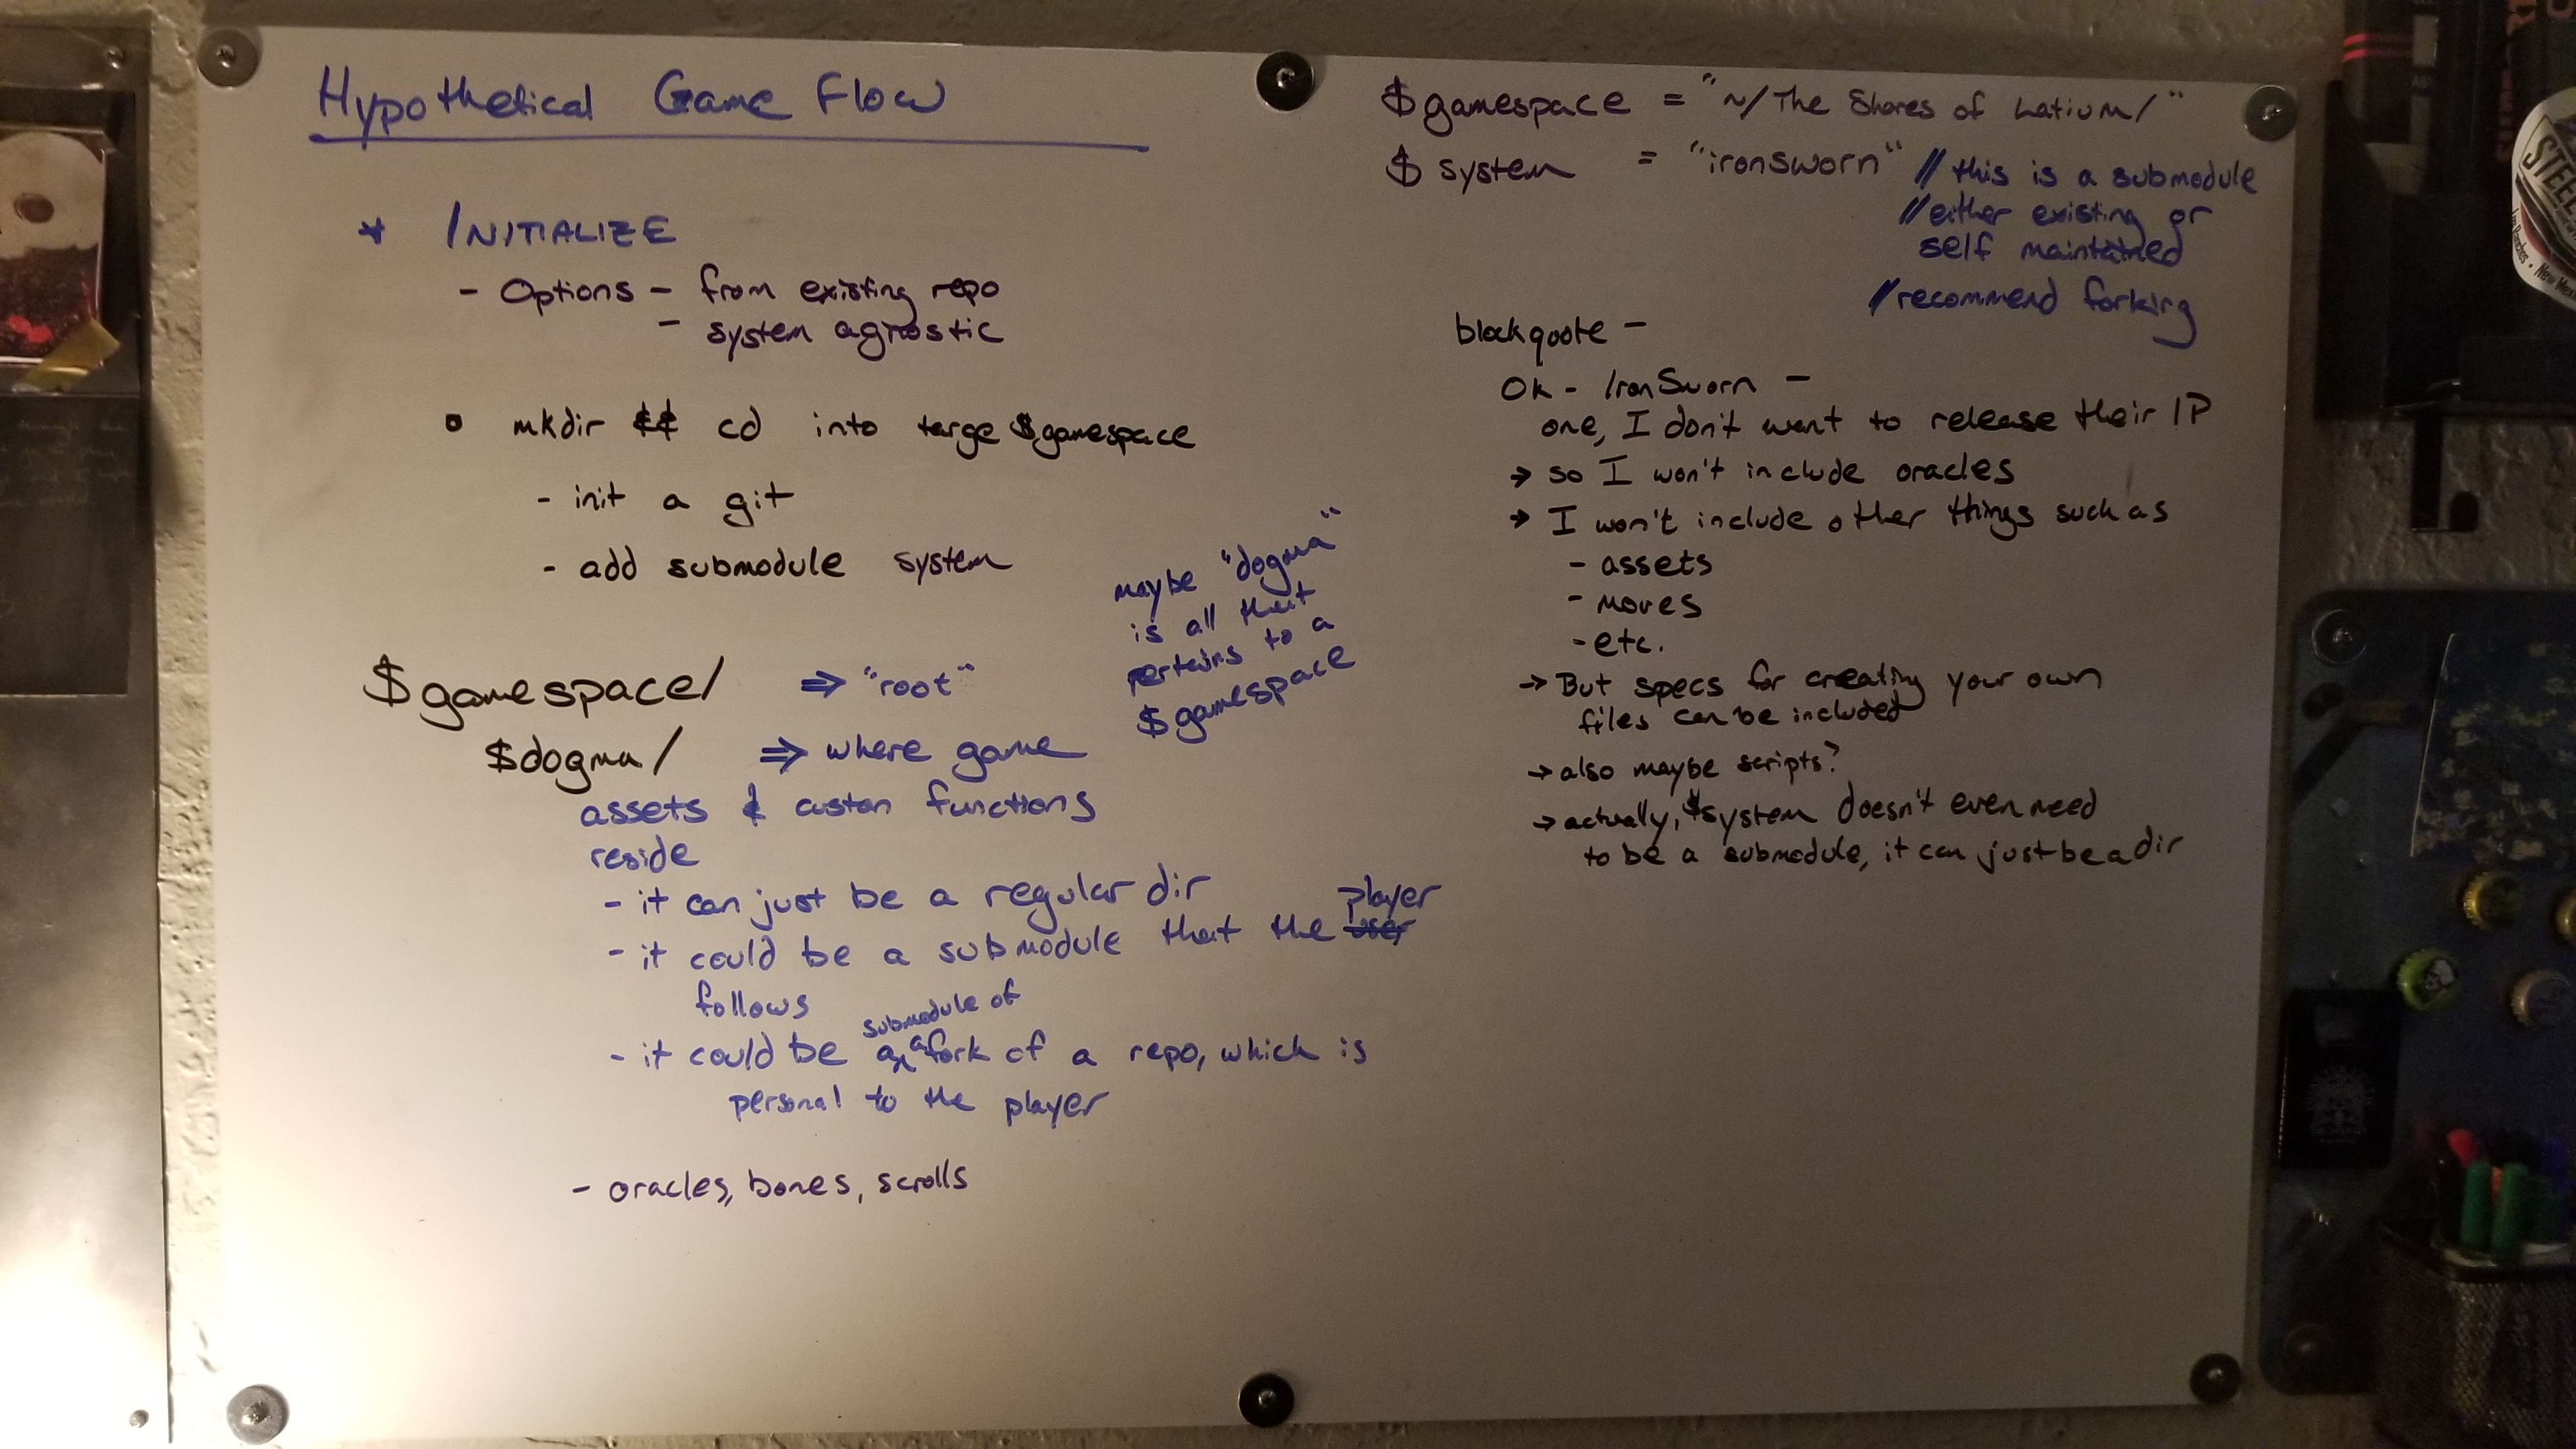 Hypothetical Game Flow
* INITIALIZE
- Options - from existing repo
- system agnostic
▫ mkdir && cd into targe $gamespace
- init a git
- add submodule system
$gamespace/ ⇒ "root"
$dogma/ ⇒ where game
assets & custon functions
reside
- it can just be a regular dir
- it could be a submodule that the user player
follows
- it could be a submodule of a fork of a repo, which is
personal to the player
- oracles, bones, scrolls
maybe "dogma"
is all that
pertains to a
$gamespace
$gamespace = "~/The Shores of Latium/"
$system = "ironsworn" // this is a submodule
// either existing or
self maintained
// recommend forking
blockquote -
Ok - IronSworn -
one, I don't want to release their IP
→ so I won't include oracles
→ I won't include other things such as
- assets
- moves
- etc.
→ But specs for creating your own
files can be included
→ also maybe scripts?
→ actually, $system doesn't even need
to be a submodule, it can just be a dir
STEEL